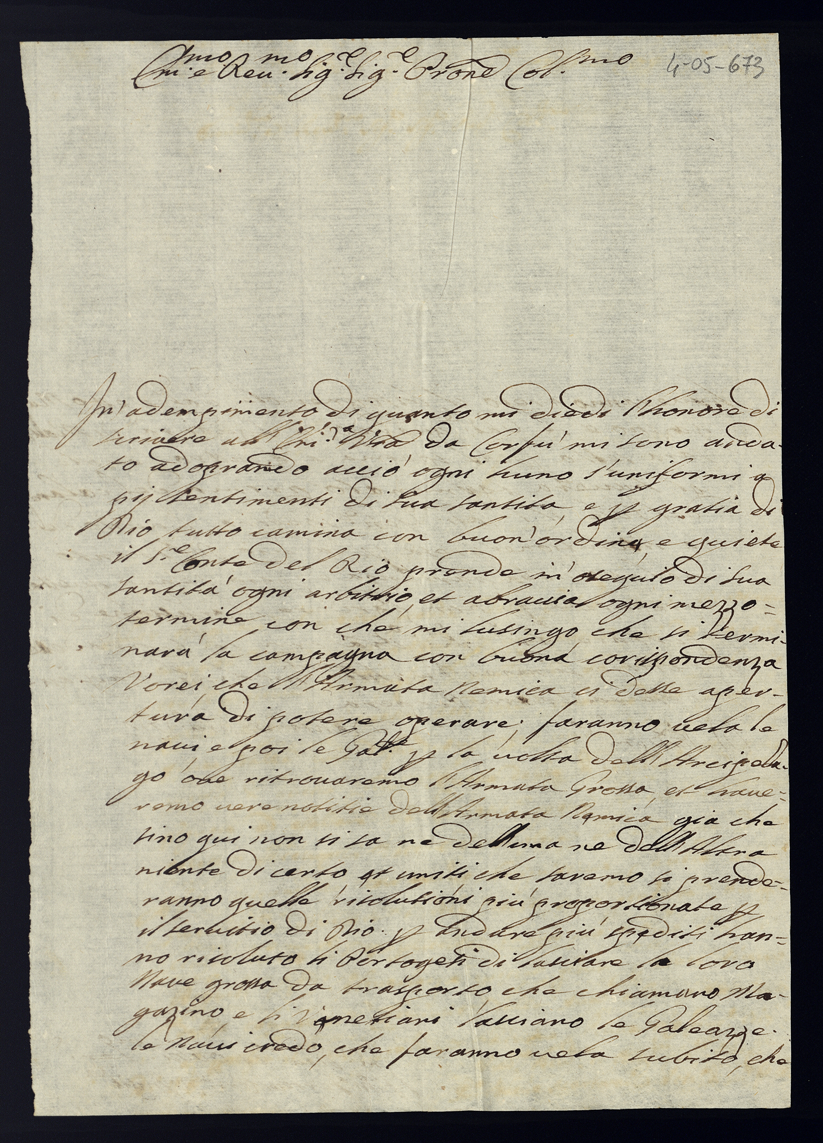 Em.mo e Rev.mo Sig.re Sig.re Prone Col.mo
4-05-673
In' adempimento di quanto mi diedi l'honore di
scrivere all' Em.za V.ra da Corfù mi sono anda-
to adoprando acciò ogni huno s'uniformi a
pij sentimenti di Sua Santità, e p gratia di
Dio tutto camina con buon' ordine, e quiete
il S.re Conte del Rio prende in' oseguio di Sua
Santità ogni arbitrio, et abraccia ogni mezzo=
termine con che mi lusingo che si termi-
narà la campagna con buona corispondenza
Vorei che l'Armata Nemica ci desse aper-
tura di potere operare; faranno vela le
navi e poi le Gal.re p la volta dell' Arcipela-
go ove ritrovaremo l'Armata Grossa, et have=
remo vere notitie dell' Armata Nemica già che
sino qui non si sa ne dell' una ne dell' Altra
niente di certo et uniti che saremo si prende=
ranno quelle risolutioni più proportionate p
il servitio di Dio. p andare più spediti han=
no risoluto li Portogesi di lasciare la loro
Nave grossa da trasporto che chiamano Ma-
gazino e li Venetiani lasciano le Galeazze.
le Navi credo, che faranno vela subito, che